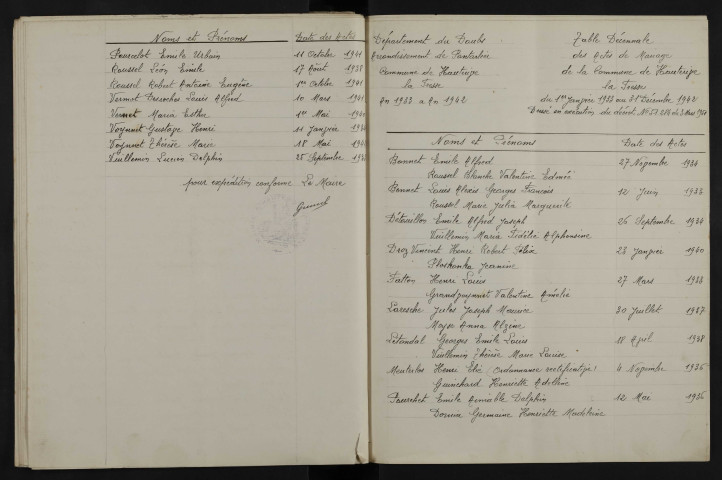 Noms et Prénoms Date des Actes
Pourcelot Emile Urbain 11 Octobre 1941
Roussel Léon Emile 17 Août 1938
Roussel Robert Antoine Eugène 1er Octobre 1941
Vermot Desroches Louis Alfred 10 Mars 1941
Maria Esther 1er Mai
Voynnet Gustave Henri 11 Janvier
Voynnet Thérèse Marie 18 Mai
Vuillemin Lucien Delphin 25 Septembre
pour expédition conforme Le Maire
Département du Doubs
Arrondissement de Pontarlier
Commune de Hauterive
la Fresse
An 1933 à An 1942
Table Décennale
des Actes de Mariage
de la Commune de Hauterive
la Fresse
du 1er Janvier 1933 au 31 Décembre 1942
Dressé en exécution du décret
Noms et Prénoms Date des Actes
Bonnet Emile Alfred 27 Novembre 1936
Roussel Blanche Valentine Edmée
Bonnet Louis Alexis Georges François 12 Juin 1933
Roussel Marie Julia Marguerite
Détouillon Emile Alfred Joseph 26 Septembre
Vuillemin Maria Fidélie Alphonsine
Droz Vincent Henri Robert Félix 23 Janvier 1940
Jeannine
Fatton Henri Louis 27 Mars 1933
Valentine Amélie
Laresche Jules Joseph Maurice 30 Juillet 1937
Anna Alzine
Létondal Georges Emile Louis 18 Avril 1938
Vuillemin Thérèse Marie Louise
Henri Elie Ordonnance rectificative 4 Novembre 1936
Guinchard Henriette Adeline
Emile Aimable Delphin 12 Mai 1936
Dornier Germaine Henriette Madeleine